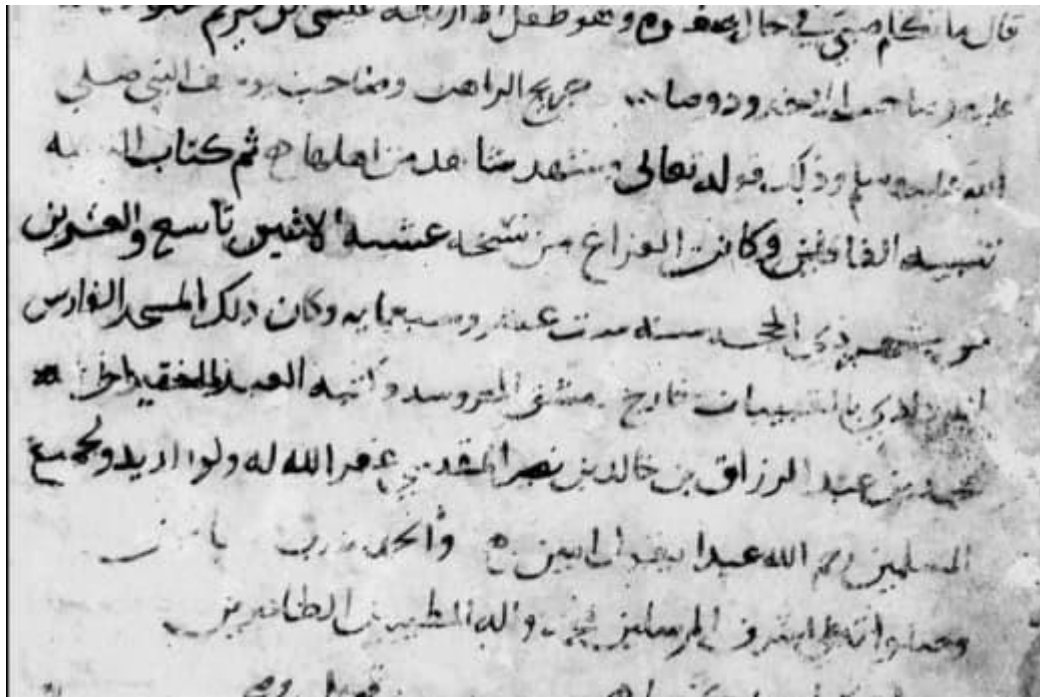 قال ما تكلم صبي في حال صغره وهو طفل الا اربعة عيسى بن مريم
عليه وصاحب الاخدود وصا جريج الراهب وصاحب يوسف النبي صلى
الله عليه وسلم وذلك قوله تعالى وشهد شاهد من اهلها ثم كتاب
تنبيه الغافلين وكان الفراغ من نسخه عشية الاثنين تاسع والعشرين
من شهر ذي الحجه سنه ست عشر وسبعمايه وكان ذلك بالمسجد الفارس
بالقبيبات خارج دمشق المحروسه العبد الفقير
محمد بن عبد الرزاق بن خالد بن نصر المقدسي غفر الله له ولوالديه ولجميع
المسلمين رحم الله عبدا يقول امين والحمد
وصلواته على اشرف المرسلين محمد واله الطيبين الطاهرين